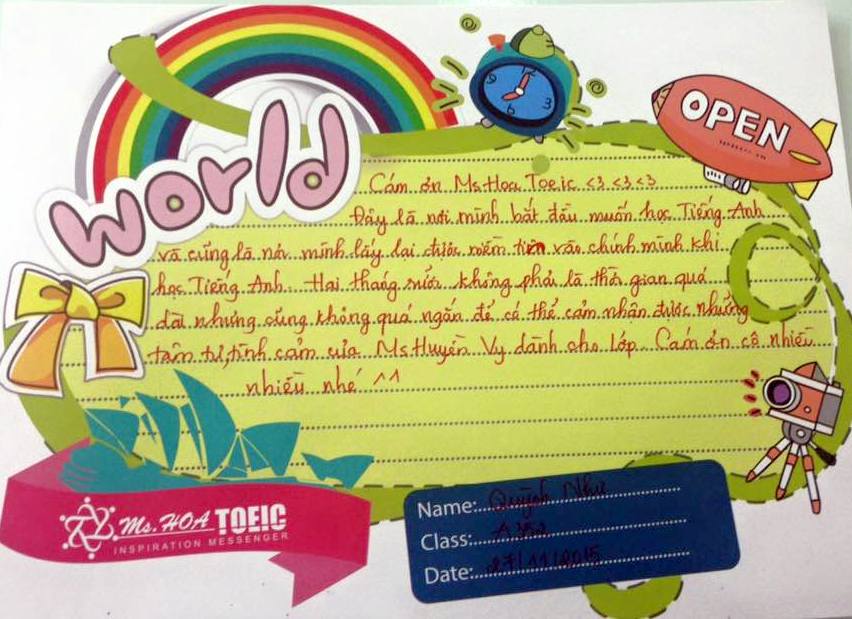 world
12
3
6
OPEN
Cám ơn Ms Hoa Toeic <3 <3 <3
Đây là nơi mình bắt đầu muốn học Tiếng Anh
và cũng là nơi mình lấy lại được niềm tin vào chính mình khi
học Tiếng Anh. Hai tháng rưỡi không phải là thời gian quá
dài nhưng cũng không quá ngắn để có thể cảm nhận được những
tâm tư, tình cảm của Ms Huyền Vy dành cho lớp. Cám ơn cô nhiều
nhiều nhé ^^
Ms. HOA TOEIC
INSPIRATION MESSENGER
Name: Quỳnh Như
Class: A352
Date: 27/11/2015